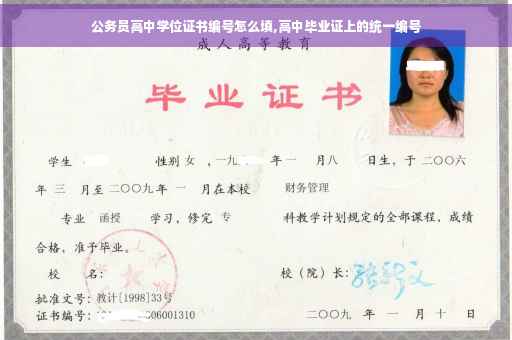 公务员高中学位证书编号怎么填,高中毕业证上的统一编号
成人高等教育
毕业证书
学生 性别 女 ,一九 年一 月八 日生,于二〇〇六
年 三 月至二〇〇九年 一 月在本校 财务管理
专业 函授 学习,修完 专 科教学计划规定的全部课程,成绩
合格,准予毕业。
校 名: 校(院)长:
批准文号:教计[1998]33号
证书编号: 06001310 二〇〇九 年 一 月 十 日